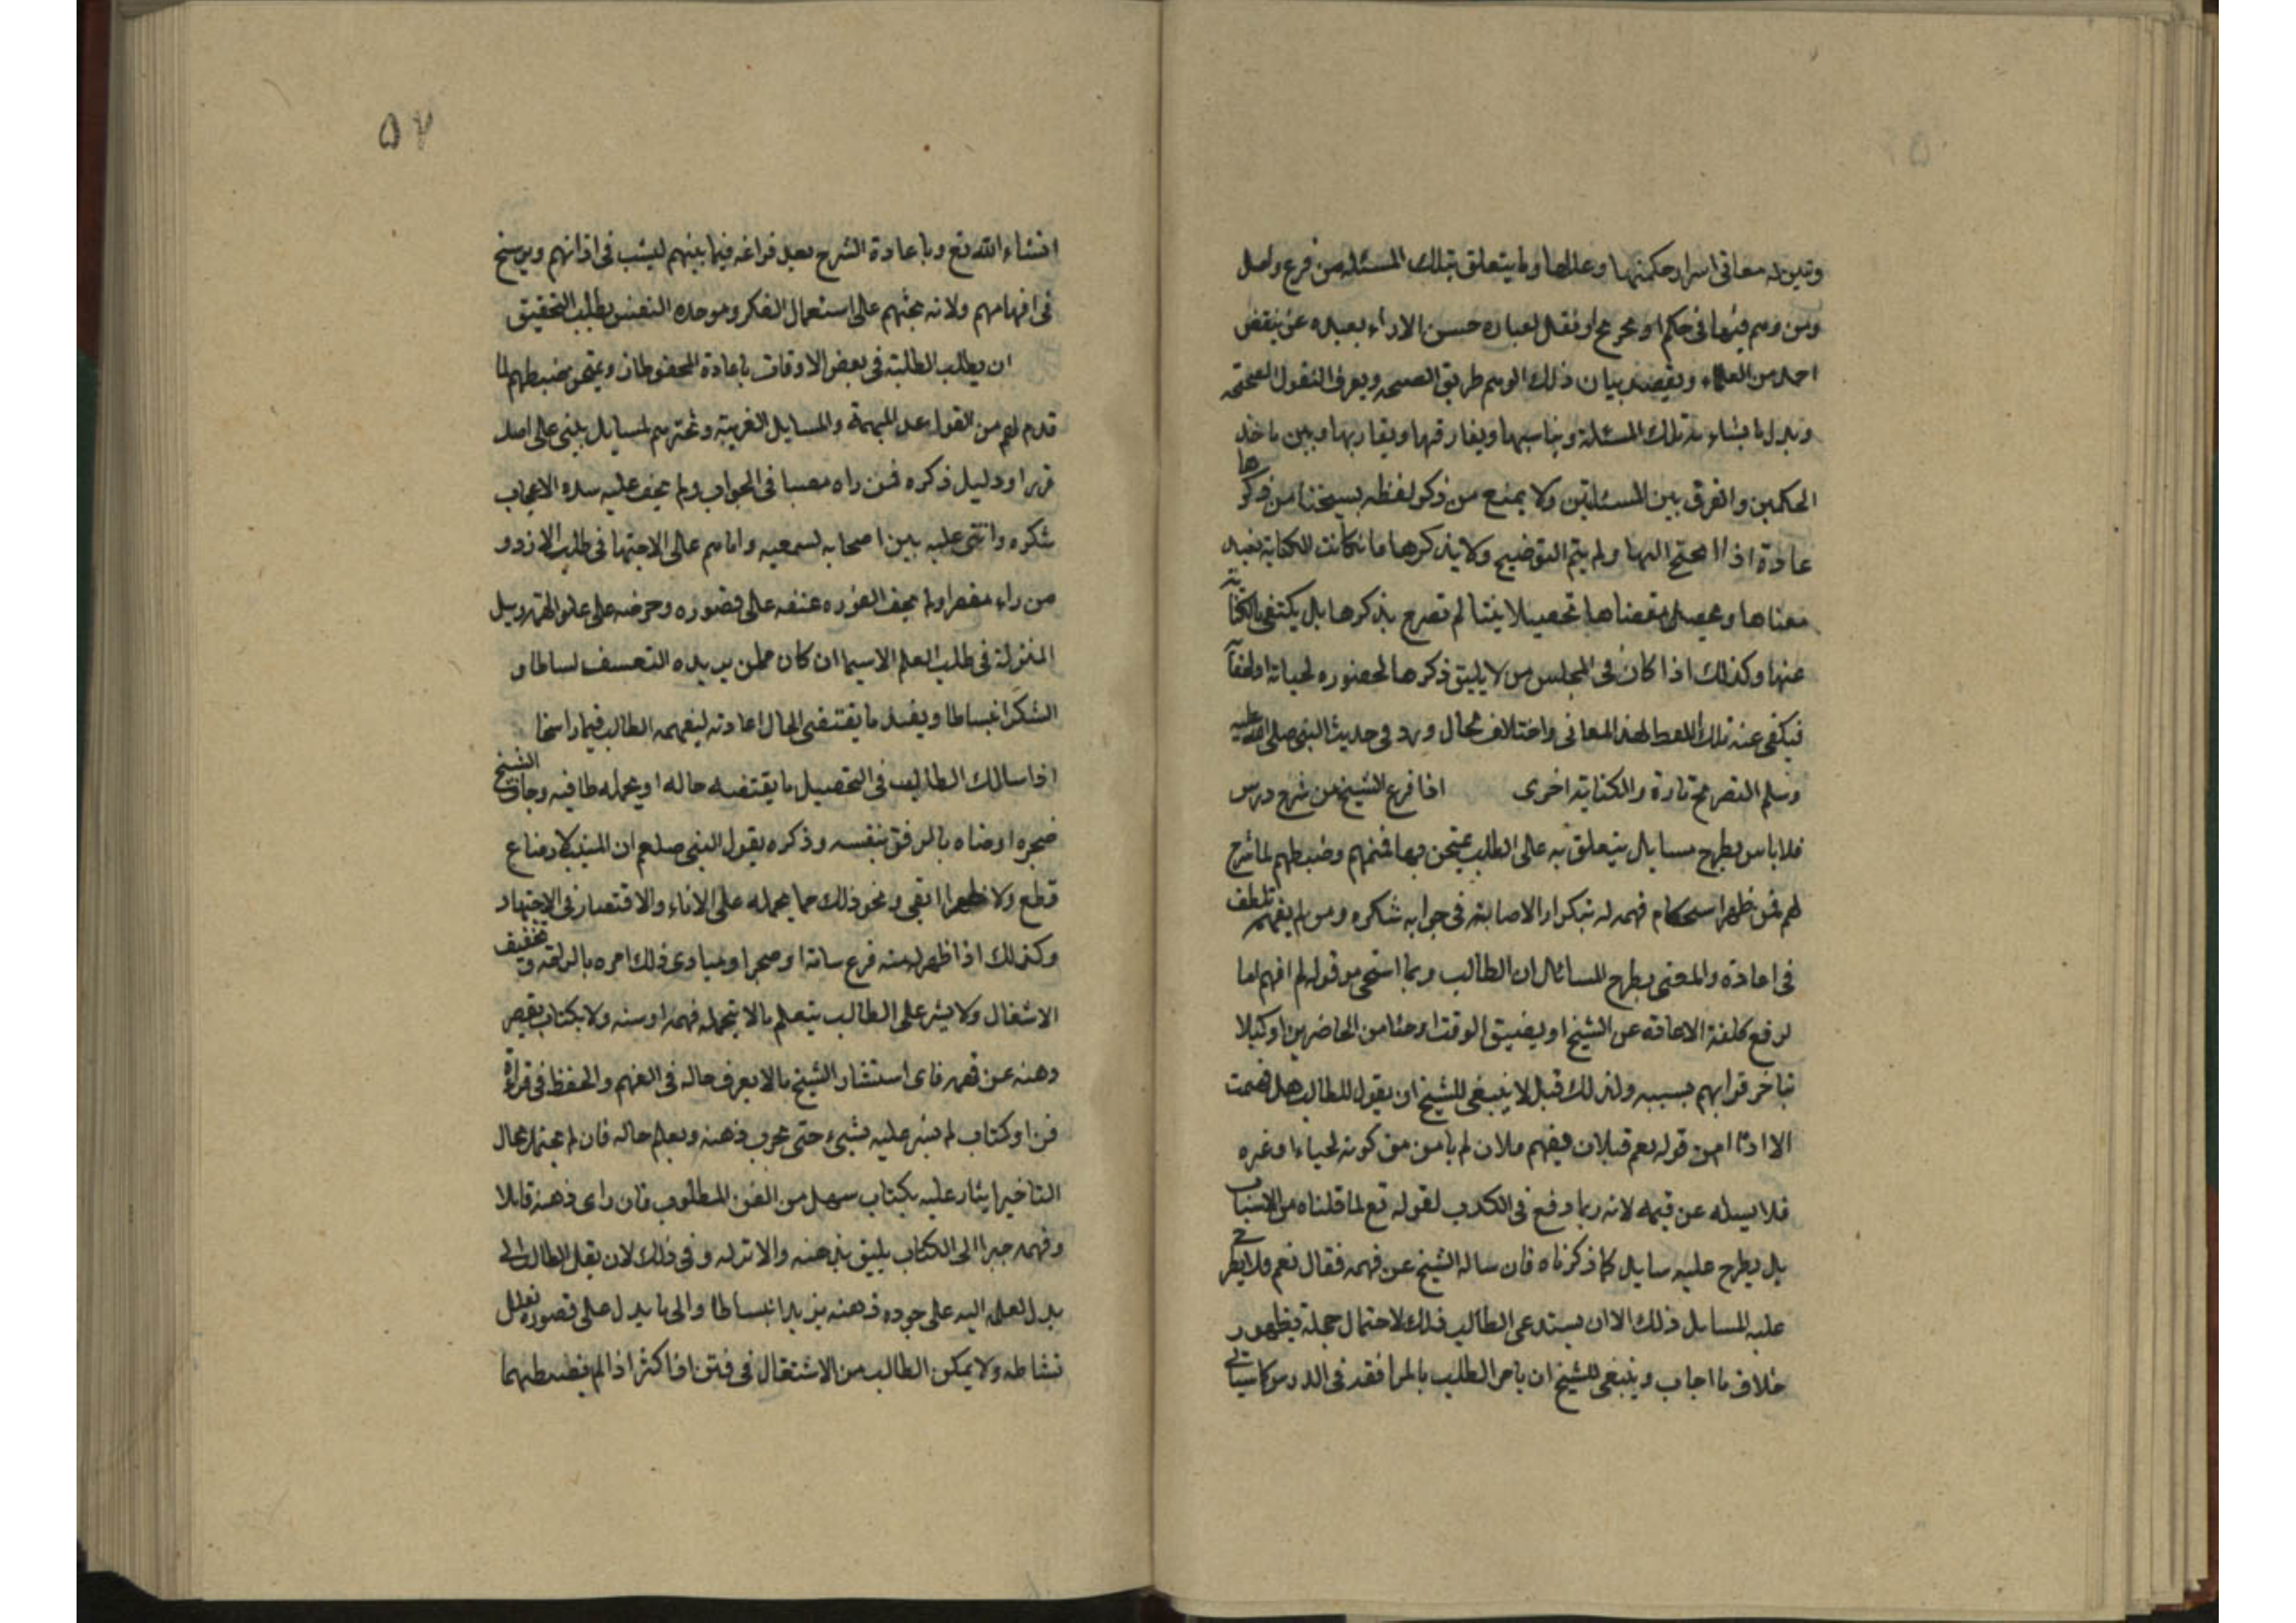 وتبين له معانى اسرار حكمتها وعللها وما يتعلق بتلك المسئله من فرع واصل
ومن وهم فيها فى حكم او تخريج او نقل بعباره حسن الاداء بعيده عن تنقض
احد من العلماء ويقصد ببيان ذلك الوهم طريق النصيحه ويعرف النقول الصحيحه
ويذكر ما يشاء به تلك المسئلة ويناسبها ويفارقها ويقاربها ويبين ماخذ
الحكمين والفرق بين المسئلتين ولا يمتنع من ذكر لفظه يستحيا من ذكرها
عادة اذا احتج اليها ولم يتم التوضيح ولا يذكرها فان كانت الكناية تفيد
معناها وتحصل مقضاها تحصيلا بينا لم تصرح بذكرها بل يكتفى بالكناية
عنها وكذلك اذا كان فى المجلس من لا يليق ذكرها لحضوره لحيائه او لحفائه
فيكفى عنه تلك اللفظ لهذ المعانى واختلاف محال ورد فى حديث النبى صلى الله عليه
وسلم التصريح تارة والكناية اخرى اذا فرغ الشيخ من شرح درس
فلا باس بطرح مسايل يتعلق به على الطلبه يمتحن بها فهمهم وضبطهم لما شرح
لهم فمن ظهر استحكام فهمه له بتكرار الاصابة فى جوابه شكره ومن لم يفهم تلطف
فى اعادة والمعنى بطرح المسائل ان الطالب ربما استحى من قوله لم افهم اما
لرفع كلفة الاعادة عن الشيخ او لضيق الوقت او حياء من الحاضرين او كيلا
تتاخر قرابهم بسببه ولذلك قيل لا ينبغى للشيخ ان يقول للطالب هل فهمت
الا اذا امن قوله نعم قبل ان يفهم فلان لم يامن من كونه لحياء او غيره
فلا يسئله عن فهمه لانه ربما وقع فى الكذب لقوله نعم لما قلناه من الاسباب
بل يطرح عليه مسايل كما ذكرناه فان ساله الشيخ عن فهمه فقال نعم فلا يطرح
عليه المسايل ذلك الا ان يستدعى الطالب ذلك لاحتمال خجلة بظهور
خلاف ما اجاب وينبغى للشيخ ان يامر الطلبه بالمرافقة فى الدروس كما سياتى
٥٧
انشاء الله تع وباعادة الشرح بعد فراغه فيما بينهم ليثبت فى اذهانهم ويرسخ
فى افهامهم ولانه يحثهم على استعمال الفكر ومواخذه النفس بطلب التحقيق
ان يطالب الطلبة فى بعض الاوقات باعادة المحفوظات ويمتحن ضبطهم لما
قدم لهم من القواعد المهمة والمسايل الغريبة ويختبرهم بمسايل يبنى على اصل
قرره او دليل ذكره فمن راه مصيبا فى الجواب ولم يخف عليه شده الاعجاب
شكره واثنى عليه بين اصحابه ليسمعيه واياهم على الاجتهاد فى طلب الازدو
من راه مقصرا ولم يخف نفوره عنفه على قصوره وحرضه على علو الهمة ونيل
المنزلة فى طلب العلم لا سيما ان كان ممن يزيده التعسف نشاطا و
الشكر انبساطا ويعيد ما يقتضى الحال اعادته ليفهمه الطالب فهما راسخا
اذا سالك الطالب فى التحصيل ما يقتضيه حاله او يحمله طاقته وخاف الشيخ
ضجره اوصاه بالرفق بنفسه وذكره بقول النبى صلعم ان المنبت لا ارضا
قطع ولا ظهرا ابقى ونحو ذلك مما يحمله على الاناة والاقتصار فى الاجتهاد
وكذلك اذا ظهر له منه نوع سامة او ضجر او مبادى ذلك امره بالراحة وتخفيف
الاشتغال ولا يشر على الطالب بتعلم ما لا يتحمله فهمه او سنه ولا بكتاب يقصر
ذهنه عن فهمه فاى استشار الشيخ ما لا يعرف حاله فى الفهم والحفظ فى قراءة
فن او كتاب لم يشر عليه بشىء حتى يجرب ذهنه ويعلم حاله فان لم يحتمل الحال
التاخير اشار عليه بكتاب سهل من الفن المطلوب فان راى ذهنه قابلا
وفهمه جيدا الى الكتاب يليق بذهنه والا تركه وفى ذلك لان نقل الطالب الى
يدل نقله اليه على جودة ذهنه يزيد انبساطا والى ما يدل على قصوره تقلل
نشاطه ولا يمكن الطالب من الاشتغال فى فنين فاكثر اذا لم يضبطهما